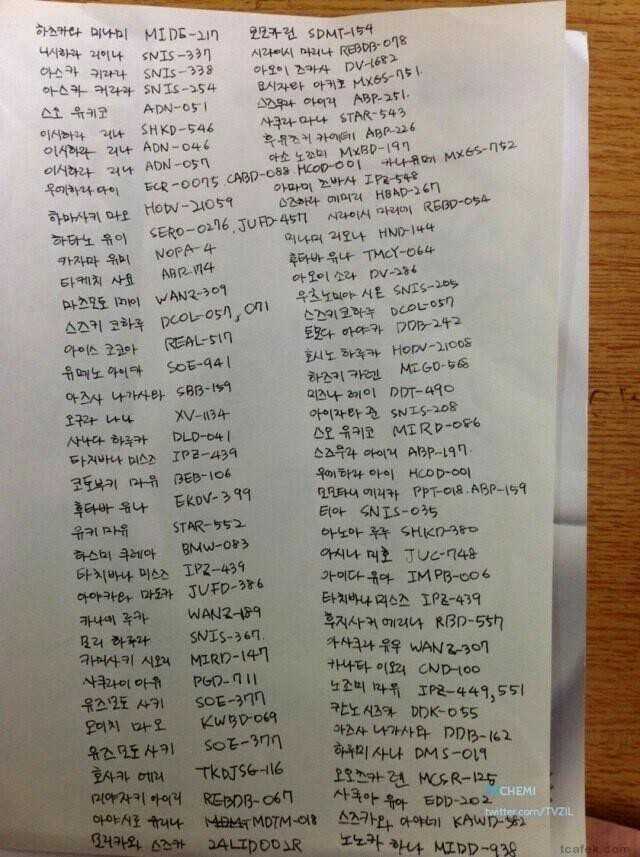 하즈카와 미나미 MIDE-217
니시하라 리이나 SNIS-337
아스카 키라라 SNIS-338
아스카 키라라 SNIS-254
스오 유키코 ADN-051
이시하라 리나 SHKD-546
이시하라 리나 ADN-046
이시하라 리나 ADN-057
우에하라 아이 ECR-0075, CABD-088. HCOD-001
하마사키 마오 HODV-21059
하타노 유이 SERO-0276, JUFD-457
카자마 유미 NOPA-4
타케치 사요 ABP-174
마츠모토 메이 WANZ-309
스즈키 코하루 DCOL-057, 071
아이스 코코아 REAL-517
유메노 아이카 SOE-941
아즈사 나가사와 SBB-159
오구라 나나 XV-1134
사나다 하루카 DLD-041
타치바나 미스즈 IPZ-439
코토부키 마유 BEB-106
후타바 유나 EKDV-399
유키 마유 STAR-552
하스미 쿠레아 BMW-083
타치바나 미스즈 IPZ-439
아야카와 마도카 JUFD-386
카나메 루카 WANZ-189
모리 하루라 SNIS-367.
카미사키 시오리 MIRD-147
사쿠라이 아유 PGD-711
유즈모토 사키 SOE-377
모이치 마오 KWBD-069
유즈모토 사키 SOE-377
호사카 에리 TKDJSG-116
미야자키 아이리 REBDB-067
아야시로 유리나 MDTM-018
모리카와 스즈카 24LID001R
모모카 린 SDMT-154
시라이시 마리나 REBDB-078
아오이 츠카사 DV-1682
요시자와 아키호 MXGS-751.
스즈무라 아이리 ABP-251.
사쿠라 마나 STAR-543
후유츠키 카에데 ABP-226
아소 노조미 MXBD-197
카나 유메 MXGS-752
아마미 츠바사 IPZ-548
스즈하라 에미리 HBAD-267
시라이시 마리에 REBD-054
미나미 리오나 HND-144
후타바 유나 TMCY-064
아오이 소라 DV-286
우츠노미야 시온 SNIS-205
스즈키 코하루 DCOL-057
토모다 아야카 DDB-242
호시노 하루카 HODV-21008
하즈키 카렌 MIGD-568
미즈나 레이 DDT-490
아이자와 쥰 SNIS-208
스오 유키코 MIRD-086
스즈무라 아이리 ABP-197.
우에하라 아이 HCOD-001
모모타니 에리카 PPT-018. ABP-159
티아 SNIS-035
아노아 루루 SHKD-380
아시나 미호 JUC-748
아이다 유아 IMPB-006
타치바나 미스즈 IPZ-439
후지사키 에리나 RBD-557
아사쿠라 유우 WANZ-307
카나타 이오리 CND-100
노조미 마유 IPZ-449, 551
칸노 시즈카 DDK-055
아즈사 나가사와 DDB-162
하루미 사나 DMS-019
오오츠카 렌 MCSR-125
사쿠아 유아 EDD-202
스즈카와 아야네 KAWD-582
노노카 하나 MIDD-938
CHEMI
twitter.com/TVZIL
tcafek.com